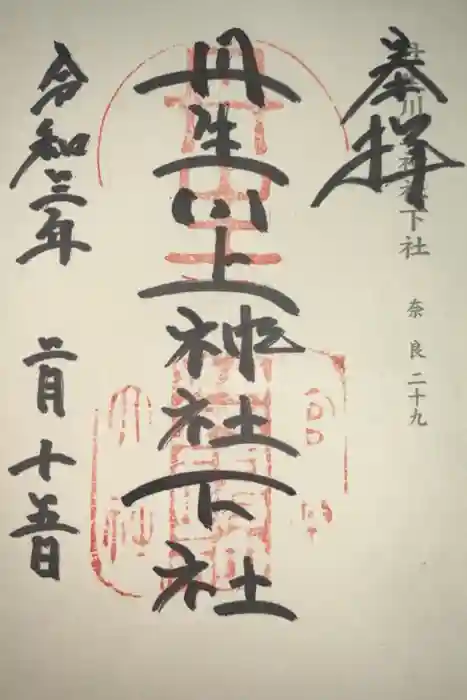 奉拝
丹生川上神社下社 奈良二十九
丹生川上神社下社
令和三年 二月十五日